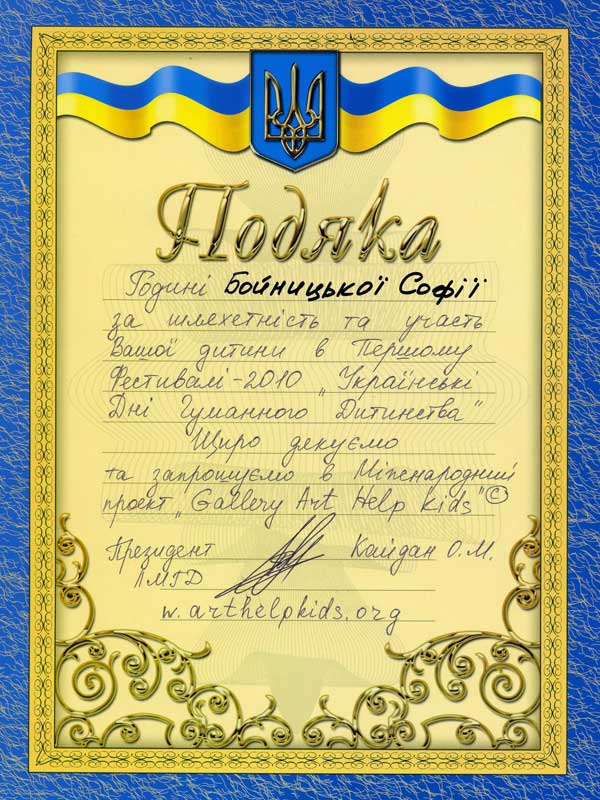 Подяка
Родині Бойницької Софії
за шлехетність та участь
Вашої дитини в Першому
Фестивалі-2010 „Українські
Дні Гуманного Дитинства"
Щиро дякуємо
та запрошуємо в Міжнародний
проект „Gallery Art Help Kids"©
Президент Кайдан О.М.
ЛМГД
w.arthelpkids.org